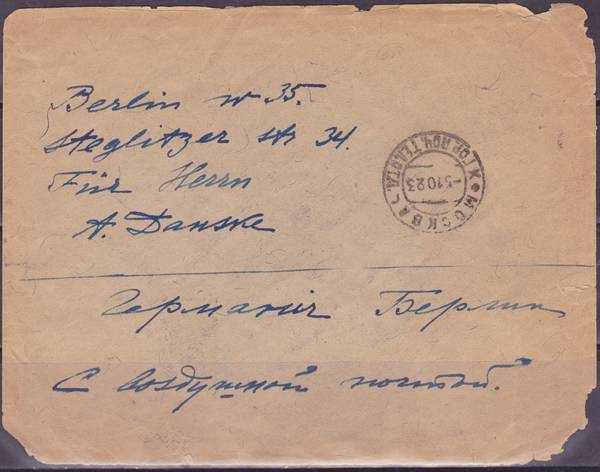 Berlin w 35.
Steglitzer str 34.
Für Herrn
A. Danske
Германия Берлин
С воздушной почтой.
МОСКВА
ГОР. ПОЧ. ТЕЛ. ОТД.
-5.10.23